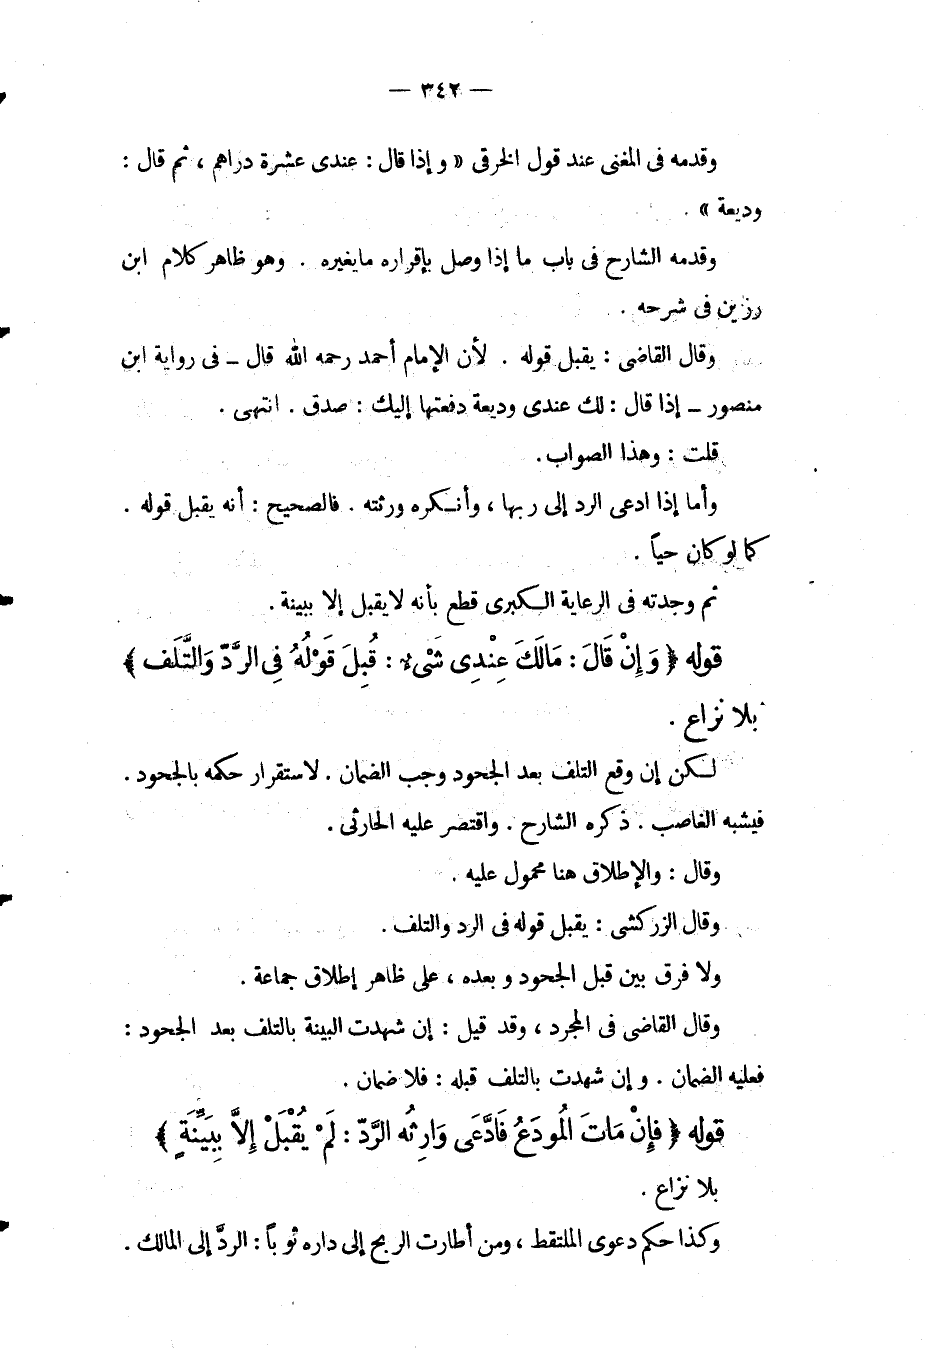 — ٣٤٢ —
وقدمه فى المغنى عند قول الخرقى « و إذا قال : عندى عشرة دراهم ، ثم قال :
وديعة » .
وقدمه الشارح فى باب ما إذا وصل بإقراره مايغيره . وهو ظاهر كلام ابن
رزين فى شرحه .
وقال القاضى : يقبل قوله . لأن الإمام أحمد رحمه الله قال ــ فى رواية ابن
منصور ــ إذا قال : لك عندى وديعة دفعتها إليك : صدق . انتهى .
قلت : وهذا الصواب .
وأما إذا ادعى الرد إلى ربها ، وأنـكره ورثته . فالصحيح : أنه يقبل قوله .
كما لو كان حياً .
ثم وجدته فى الرعاية الـكبرى قطع بأنه لايقبل إلا ببينة .
قوله ﴿ وَإِنْ قَالَ : مَالَكَ عِنْدِى شَىْءٌ : قُبِلَ قَوْلُهُ فِى الرَّدِّ وَالتَّلَف ﴾
بلا نزاع .
لـكن إن وقع التلف بعد الجحود وجب الضمان . لاستقرار حكمه بالجحود .
فيشبه الغاصب . ذكره الشارح . واقتصر عليه الحارثى .
وقال : والإطلاق هنا محمول عليه .
وقال الزركشى : يقبل قوله فى الرد والتلف .
ولا فرق بين قبل الجحود و بعده ، على ظاهر إطلاق جماعة .
وقال القاضى فى المجرد ، وقد قيل : إن شهدت البينة بالتلف بعد الجحود :
فعليه الضمان . و إن شهدت بالتلف قبله : فلا ضمان .
قوله ﴿ فَإِنْ مَاتَ الُمودَعُ فَادَّعَى وَارِثُه الرَّدّ : لَمْ يُقْبَلْ إِلاَّ بِبَيِّنَةٍ ﴾
بلا نزاع .
وكذا حكم دعوى الملتقط ، ومن أطارت الريح إلى داره ثو باً : الردَّ إلى المالك .